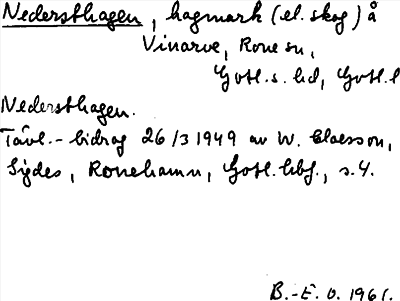 Nedersthagen, hagmark (el. skog) å
Vinarve, Rone sn,
Gotl. s. hd, Gotl. l
Nedersthagen.
Tävl.-bidrag 26/3 1949 av W. Claesson,
Sigdes, Ronehamn, Gotl. hbf., s. 4.
B.-E. O. 1961.